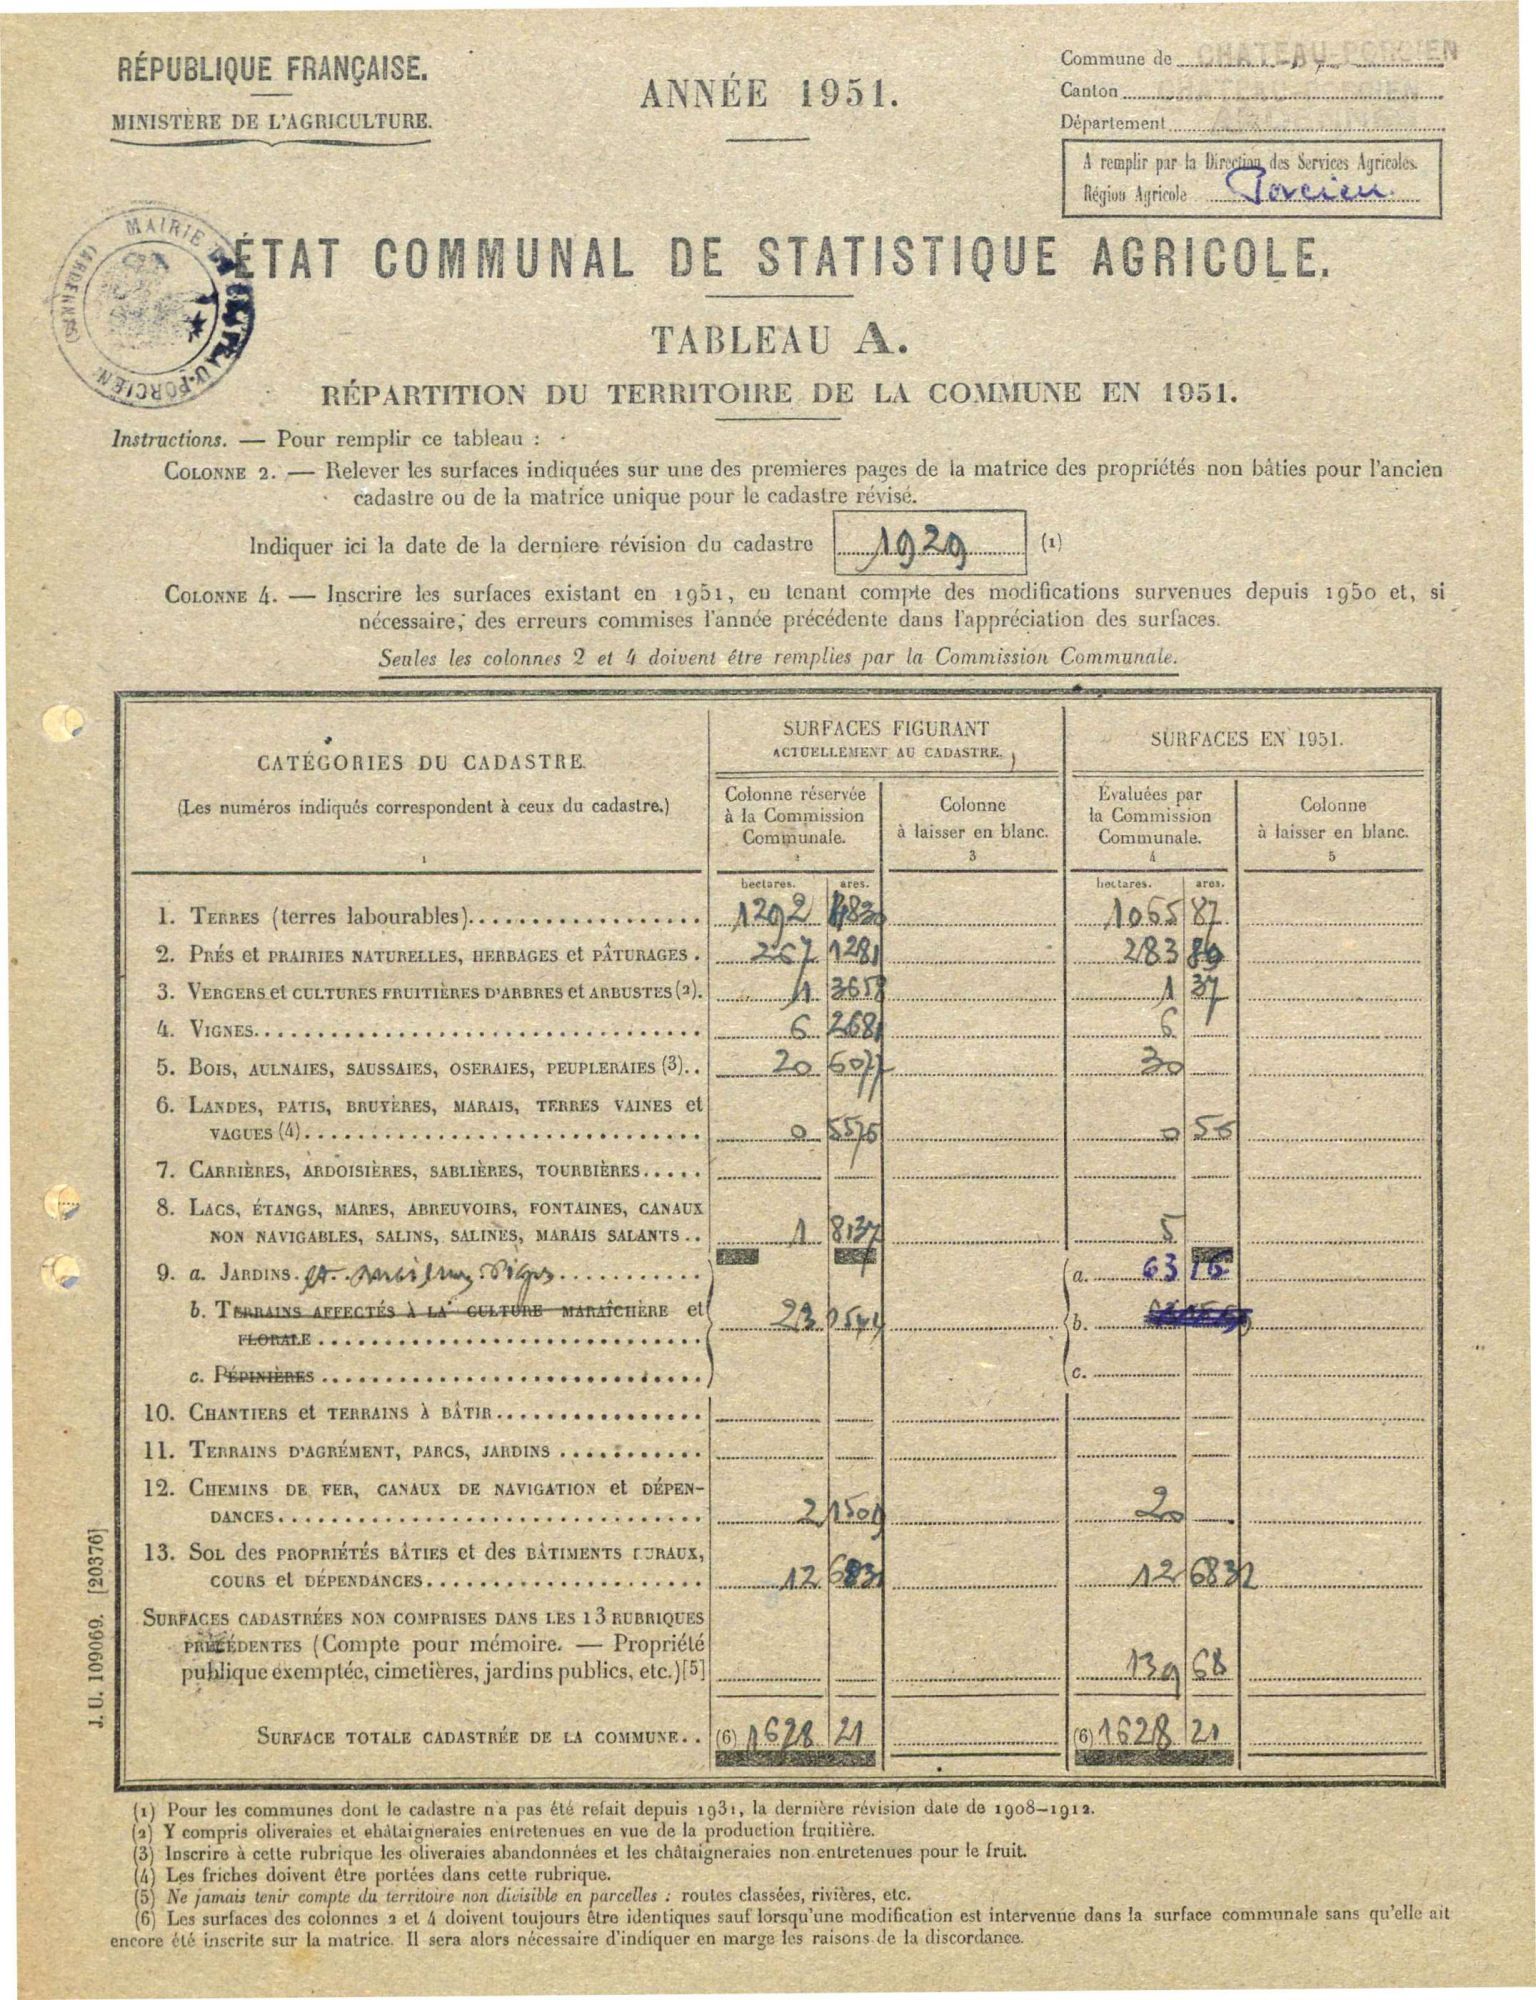 RÉPUBLIQUE FRANÇAISE.
MINISTÈRE DE L'AGRICULTURE.
ANNÉE 1951.
Commune de CHATEAU-PORCIEN
Canton
Département
A remplir par la Direction des Services Agricoles.
Région Agricole Porcien
MAIRIE DE CHATEAU-PORCIEN (ARDENNES)
ÉTAT COMMUNAL DE STATISTIQUE AGRICOLE.
TABLEAU A.
RÉPARTITION DU TERRITOIRE DE LA COMMUNE EN 1951.
Instructions. — Pour remplir ce tableau :
COLONNE 2. — Relever les surfaces indiquées sur une des premieres pages de la matrice des propriétés non bâties pour l'ancien
cadastre ou de la matrice unique pour le cadastre révisé.
Indiquer ici la date de la derniere révision du cadastre 1929 (1)
COLONNE 4. — Inscrire les surfaces existant en 1951, en tenant compte des modifications survenues depuis 1950 et, si
nécessaire, des erreurs commises l'année précédente dans l'appréciation des surfaces.
Seules les colonnes 2 et 4 doivent être remplies par la Commission Communale.
CATÉGORIES DU CADASTRE.
(Les numéros indiqués correspondent à ceux du cadastre.)
1
SURFACES FIGURANT
ACTUELLEMENT AU CADASTRE.
SURFACES EN 1951.
Colonne réservée
à la Commission
Communale.
2
Colonne
à laisser en blanc.
3
Évaluées par
la Commission
Communale.
4
Colonne
à laisser en blanc.
5
hectares. ares. hectares. ares.
1. TERRES (terres labourables) 1292 4830 1065 87
2. PRÉS et PRAIRIES NATURELLES, HERBAGES et PÂTURAGES. 267 1281 283 89
3. VERGERS et CULTURES FRUITIÈRES D'ARBRES et ARBUSTES (2). 1 3658 1 37
4. VIGNES 6 2681 6
5. BOIS, AULNAIES, SAUSSAIES, OSERAIES, PEUPLERAIES (3). 20 6077 30
6. LANDES, PATIS, BRUYÈRES, MARAIS, TERRES VAINES et
VAGUES (4) 0 5576 0 56
7. CARRIÈRES, ARDOISIÈRES, SABLIÈRES, TOURBIÈRES
8. LACS, ÉTANGS, MARES, ABREUVOIRS, FONTAINES, CANAUX
NON NAVIGABLES, SALINS, SALINES, MARAIS SALANTS 1 8137 5
9. a. JARDINS a. 63 16
b. TERRAINS AFFECTÉS À LA CULTURE MARAÎCHÈRE et 23 b.
FLORALE
c. PÉPINIÈRES c.
10. CHANTIERS et TERRAINS À BÂTIR
11. TERRAINS D'AGRÉMENT, PARCS, JARDINS
12. CHEMINS DE FER, CANAUX DE NAVIGATION et DÉPEN-
DANCES 2 1509 20
13. SOL des PROPRIÉTÉS BÂTIES et des BÂTIMENTS RURAUX,
COURS et DÉPENDANCES 12 6832 12 6832
SURFACES CADASTRÉES NON COMPRISES DANS LES 13 RUBRIQUES
PRÉCÉDENTES (Compte pour mémoire. — Propriété
publique exemptée, cimetières, jardins publics, etc.) [5] 139 68
SURFACE TOTALE CADASTRÉE DE LA COMMUNE (6) 1628 21 (6) 1628 21
J. U. 109069. [20376]
(1) Pour les communes dont le cadastre n'a pas été refait depuis 1931, la dernière révision date de 1908-1912.
(2) Y compris oliveraies et châtaigneraies entretenues en vue de la production fruitière.
(3) Inscrire à cette rubrique les oliveraies abandonnées et les châtaigneraies non entretenues pour le fruit.
(4) Les friches doivent être portées dans cette rubrique.
(5) Ne jamais tenir compte du territoire non divisible en parcelles : routes classées, rivières, etc.
(6) Les surfaces des colonnes 2 et 4 doivent toujours être identiques sauf lorsqu'une modification est intervenue dans la surface communale sans qu'elle ait
encore été inscrite sur la matrice. Il sera alors nécessaire d'indiquer en marge les raisons de la discordance.